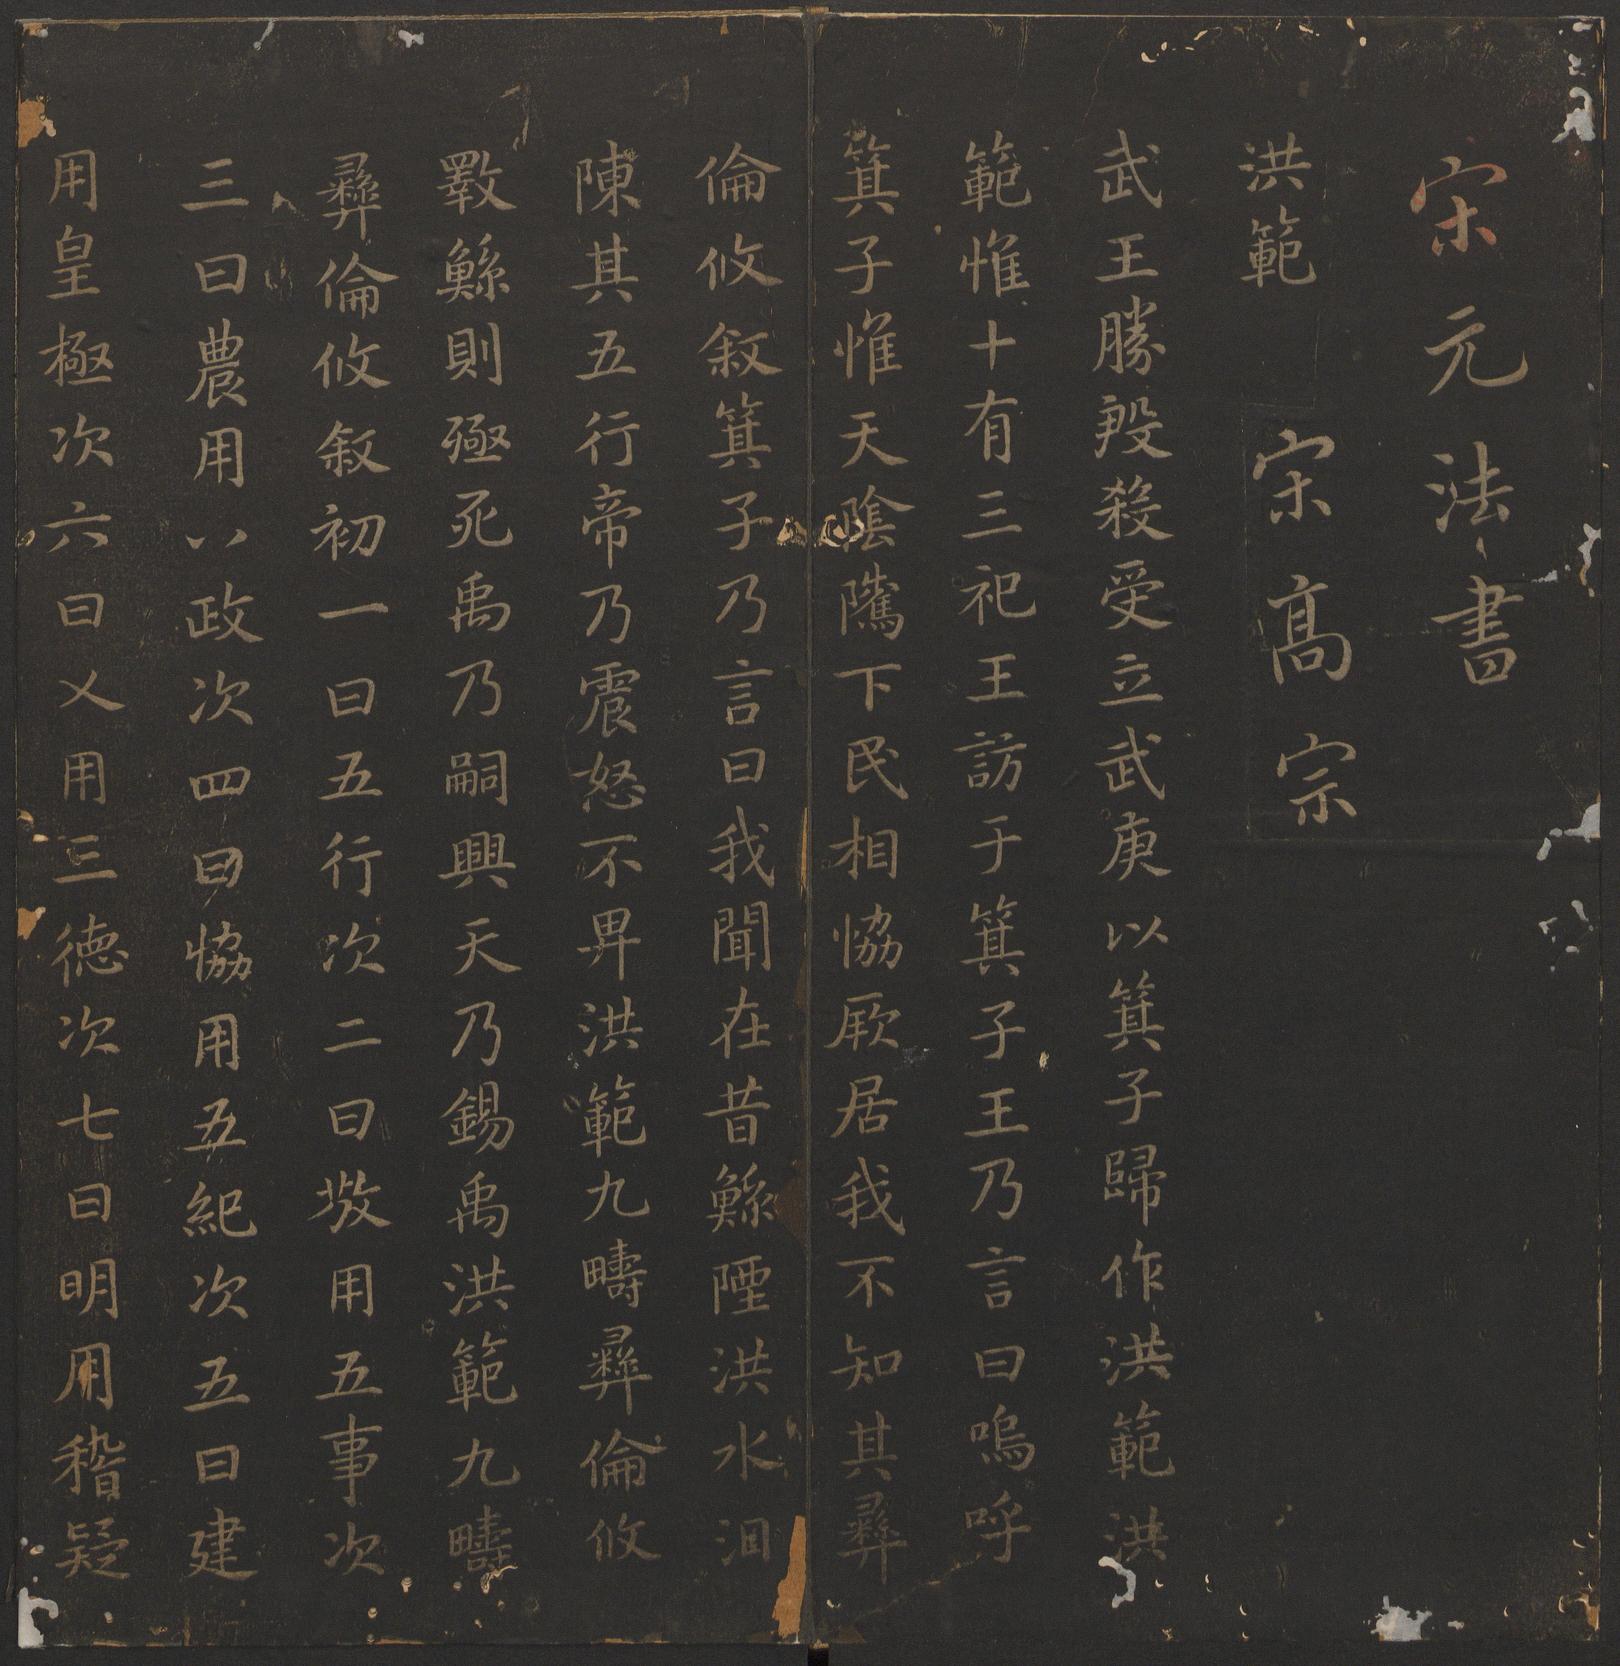 宋元法書
洪範　宋高宗
武王勝殷殺受立武庚以箕子歸作洪範洪
範惟十有三祀王訪于箕子王乃言曰嗚呼
箕子惟天陰騭下民相協厥居我不知其彝
倫攸敘箕子乃言曰我聞在昔鯀陻洪水汩
陳其五行帝乃震怒不畀洪範九疇彝倫攸
斁鯀則殛死禹乃嗣興天乃錫禹洪範九疇
彝倫攸敘初一曰五行次二曰敬用五事次
三曰農用八政次四曰協用五紀次五曰建
用皇極次六曰乂用三德次七曰明用稽疑